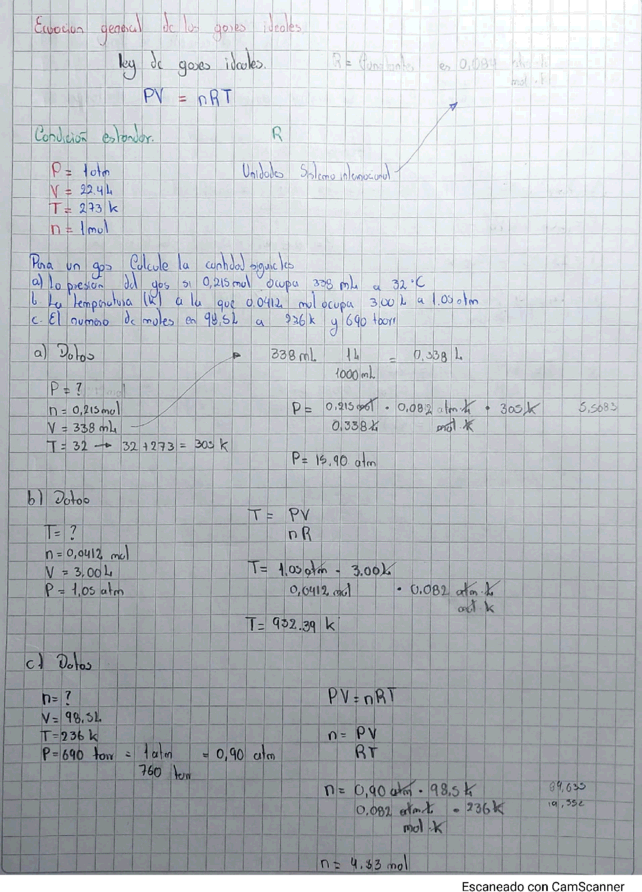 Ecuacion general de los gases ideales
ley de gases ideales. R = Constante es 0,082
mol · k
PV = nRT
Condición estandar. R
P = 1 atm Unidades Sistema internacional
V = 22.4 L
T = 273 k
n = 1 mol
Para un gas Calcule la cantidad siguientes
a) La presión del gas si 0,215 mol ocupa 338 mL a 32 °C
b. La temperatura (k) a la que 0.0412 mol ocupa 3,00 L a 1.05 atm
c. El numero de moles en 98,5 L a 236 k y 690 torr
a) Datos 338 mL 1 L = 0,338 L
1000 mL
P = ?
n = 0,215 mol P = 0,215 mol · 0,082 atm·L · 305 k 5,5083
V = 338 mL 0,338 L mol·k
T = 32 → 32 + 273 = 305 k
P = 15,90 atm
b) Datos T = PV
nR
T = ?
n = 0,0412 mol
V = 3,00 L T = 1,05 atm · 3,00 L
P = 1,05 atm 0,0412 mol · 0.082 atm·L
mol·k
T = 932.39 k
c) Datos
n = ? PV = nRT
V = 98,5 L
T = 236 k n = PV
P = 690 torr = 1 atm = 0,90 atm RT
760 torr
n = 0,90 atm · 98,5 L
0.082 atm·L · 236 k 19,352
mol·k
n = 4.33 mol
Escaneado con CamScanner